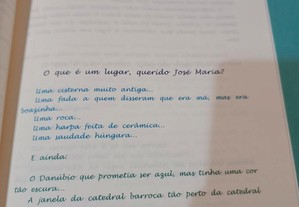 O que é um lugar, querido José Maria?
Uma cisterna muito antiga...
Uma fada a quem disseram que era má, mas era
boazinha...
Uma roca...
Uma harpa feita de cerâmica...
Uma saudade húngara...
E ainda:
O Danúbio que prometia ser azul, mas tinha uma cor
tão escura...
A janela da catedral barroca tão perto da catedral